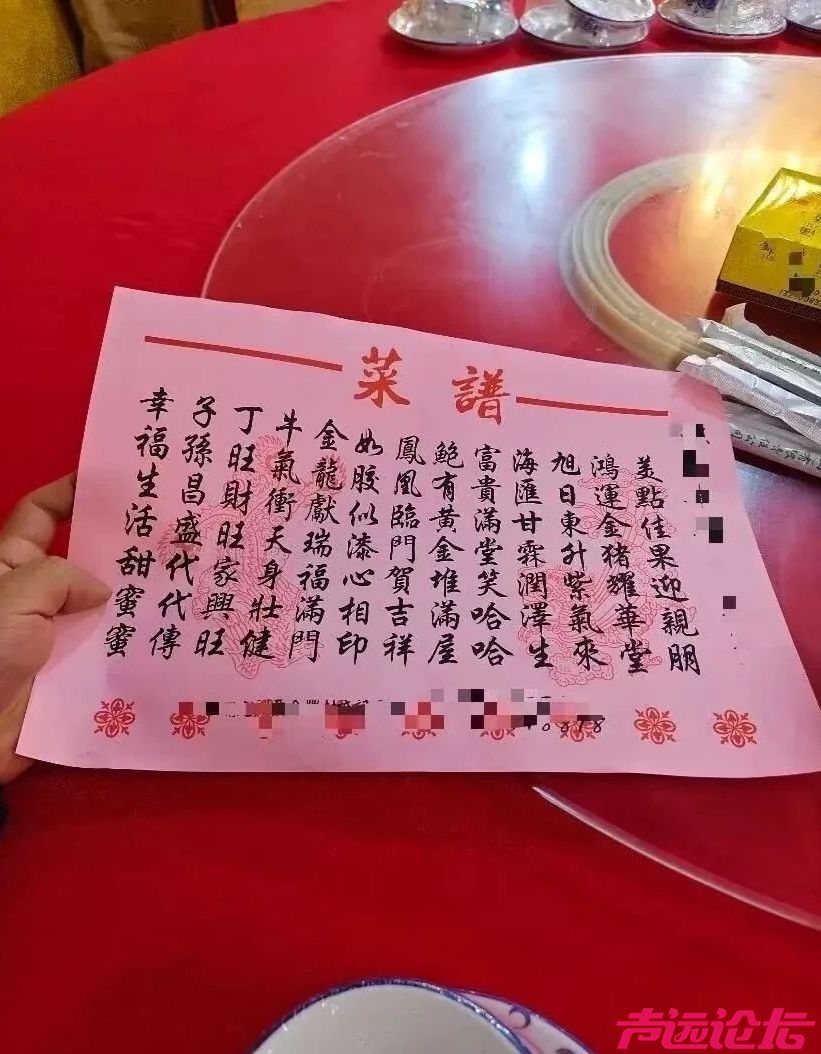 菜譜
美點佳果迎親朋
鴻運金猪耀華堂
旭日東升紫氣來
海匯甘霖潤澤生
富貴滿堂笑哈哈
鮑有黄金堆滿屋
鳳凰臨門賀吉祥
如膠似漆心相印
金龍獻瑞福滿門
牛氣衝天身壯健
丁旺財旺家興旺
子孫昌盛代代傳
幸福生活甜蜜蜜
声远论坛